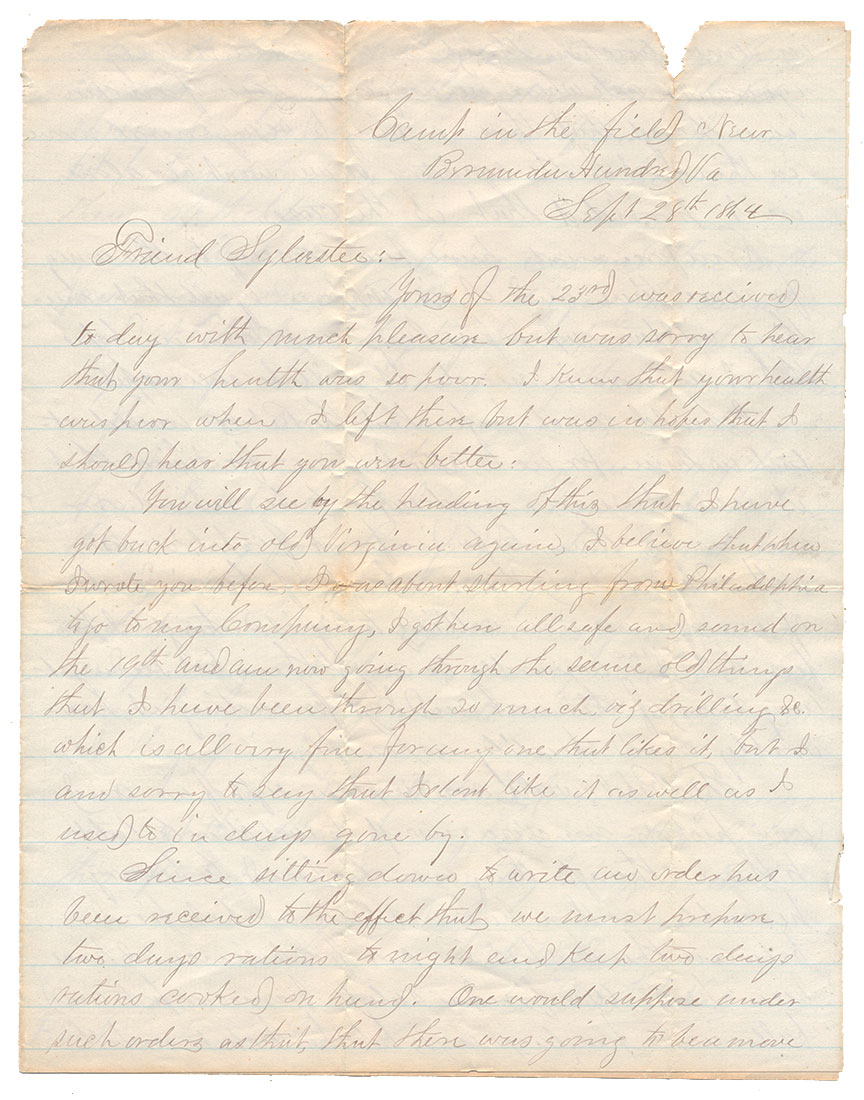 Camp in the field Near
Bermuda Hundred Va
Sept 28th 1864
Friend Sylvester:-
Yours of the 23rd was received
to day with much pleasure but was sorry to hear
that your health was so poor. I knew that your health
was poor when I left there but was in hopes that I
should hear that you were better.
You will see by the heading of this that I have
got back into old Virginia again, I believe that when
I wrote you before, I was about starting from Philadelphia
to go to my Company, I got here all safe and sound on
the 19th and am now going through the same old things
that I have been through so much, viz drilling &c.
which is all very fine for any one that likes it, but I
am sorry to say that I dont like it as well as I
used to in days gone by.
Since sitting down to write an order has
been received to the effect that we must prepare
two days rations to night and keep two days
rations cooked on hand. One would suppose under
such orders as that, that there was going to be a move